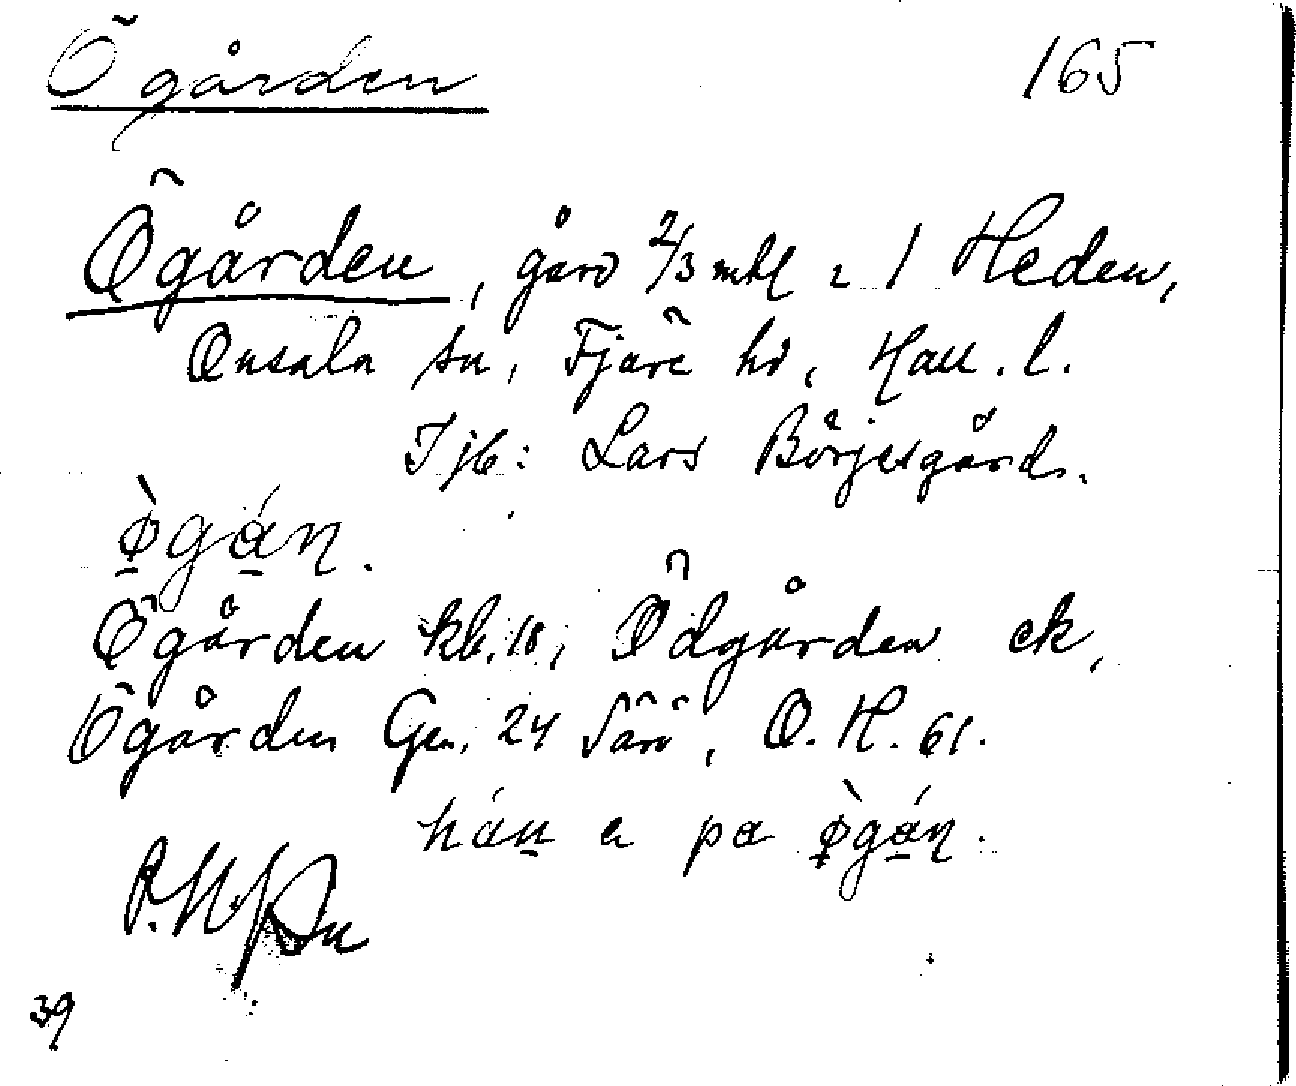 Ögården 165
Ögården, gård 2/3 mtl i 1 Heden,
Onsala sn, Fjäre hd, Hall. l.
Ijb: Lars Börjesgård.
ø̀gán.
Ögården kb. 18, Ödgården ek,
Ögården Gen. 24 Särö, O. H. 61.
hán a pa ø̀gán.
39